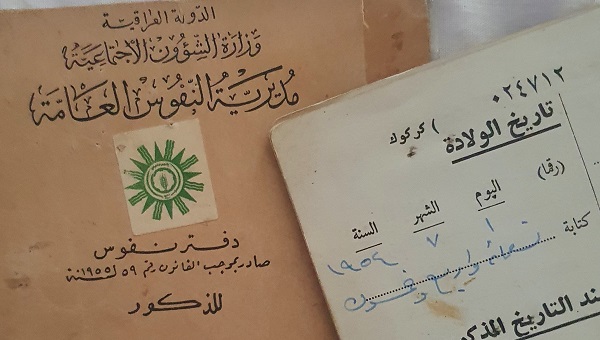 الدولة العراقية
وزارة الشؤون الاجتماعية
مديرية النفوس العامة
دفتر نفوس
صادر بموجب القانون رقم ٥٩ لسنة ١٩٥٥
للذكور
٠٢٤٧١٢
تاريخ الولادة ) كركوك
(رقما) اليوم الشهر السنة
١ ٧ ١٩٥٤
كتابة
ند التاريخ المذكو